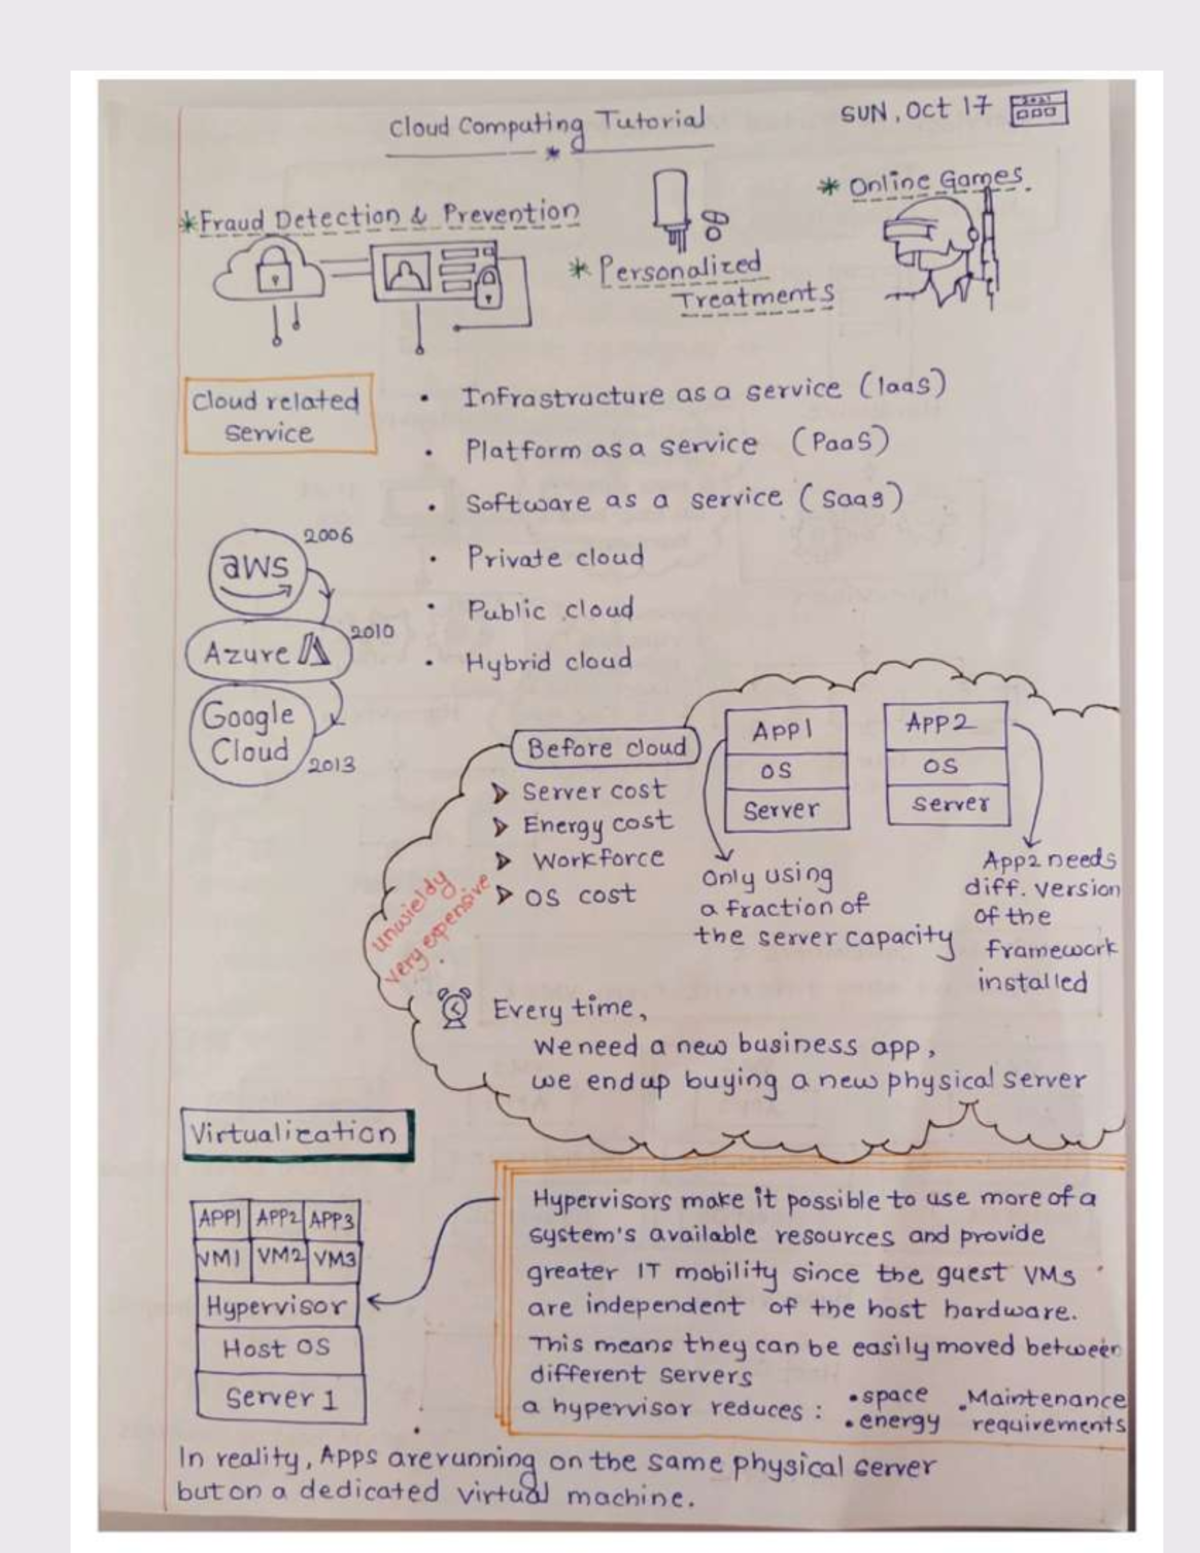 Cloud Computing Tutorial
SUN, Oct 17
2021
* Fraud Detection & Prevention
* Personalized
Treatments
* Online Games
Cloud related
service
• Infrastructure as a service (Iaas)
• Platform as a service (PaaS)
• Software as a service (Saas)
• Private cloud
• Public cloud
• Hybrid cloud
aws
2006
Azure
2010
Google
Cloud
2013
Before cloud
➤ Server cost
➤ Energy cost
➤ Workforce
➤ OS cost
unwieldy
very expensive
APP1
OS
Server
APP2
OS
Server
Only using
a fraction of
the server capacity
App2 needs
diff. version
of the
framework
installed
Every time,
We need a new business app,
we end up buying a new physical server
Virtualization
APP1 APP2 APP3
VM1 VM2 VM3
Hypervisor
Host OS
Server 1
Hypervisors make it possible to use more of a
system's available resources and provide
greater IT mobility since the guest VMs
are independent of the host hardware.
This means they can be easily moved between
different servers
a hypervisor reduces : • space • Maintenance
• energy requirements
In reality, Apps are running on the same physical server
but on a dedicated virtual machine.